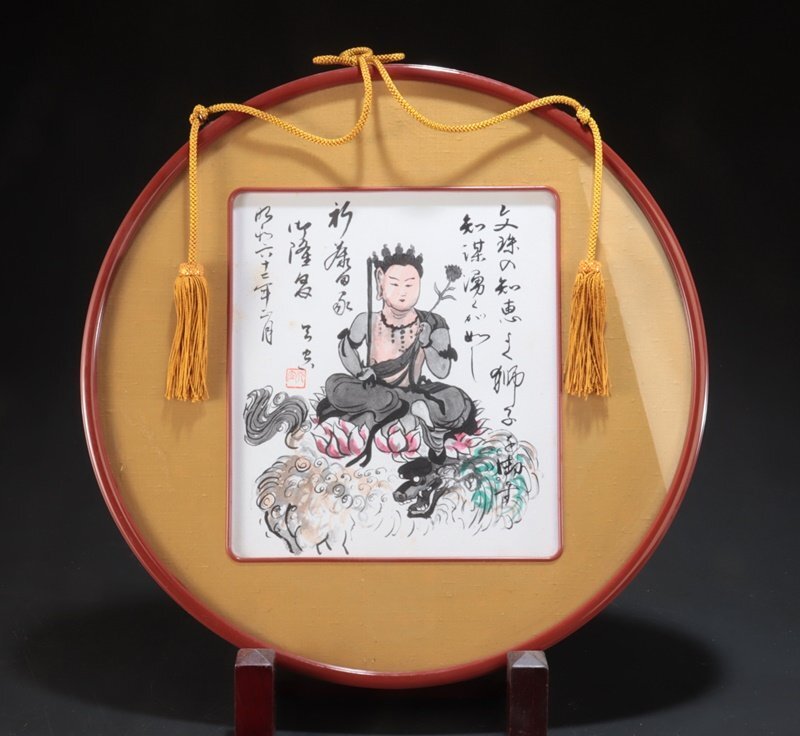 文珠の知恵よく獅子を御す
知謀湧くが如し
祈 藤田家
御隆昌
昭和六十三年二月